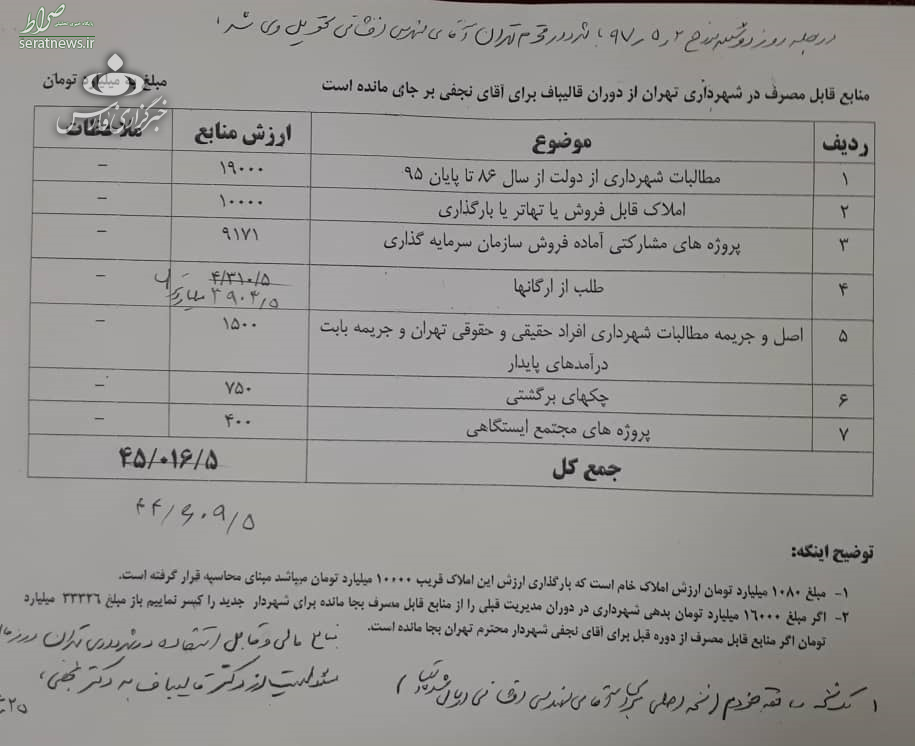 صراط
پایگاه خبری تحلیلی
seratnews.ir
در جلسه روز دوشنبه مورخ ۹۷/۵/۲ با شهردار محترم تهران آقای مهندس افشانی تحویل وی شد
منابع قابل مصرف در شهرداری تهران از دوران قالیباف برای آقای نجفی بر جای مانده است
مبلغ به میلیارد تومان
خبرگزاری فارس
ردیف موضوع ارزش منابع ملاحظات
۱ مطالبات شهرداری از دولت از سال ۸۶ تا پایان ۹۵ ۱۹۰۰۰ –
۲ املاک قابل فروش یا تهاتر یا بارگذاری ۱۰۰۰۰ –
۳ پروژه های مشارکتی آماده فروش سازمان سرمایه گذاری ۹۱۷۱ –
۴ طلب از ارگانها ۴/۳۱۰/۵ –
۳۹۰۳/۵ میلیارد
۵ اصل و جریمه مطالبات شهرداری افراد حقیقی و حقوقی تهران و جریمه بابت ۱۵۰۰ –
درآمدهای پایدار
۶ چکهای برگشتی ۷۵۰ –
۷ پروژه های مجتمع ایستگاهی ۴۰۰ –
جمع کل ۴۵/۰۱۶/۵
۴۴/۶۰۹/۵
توضیح اینکه:
۱- مبلغ ۱۰۸۰ میلیارد تومان ارزش املاک خام است که بارگذاری ارزش این املاک قریب ۱۰۰۰۰ میلیارد تومان میباشد مبنای محاسبه قرار گرفته است.
۲- اگر مبلغ ۱۶۰۰۰ میلیارد تومان بدهی شهرداری در دوران مدیریت قبلی را از منابع قابل مصرف بجا مانده برای شهردار جدید را کبسر نماییم باز مبلغ ۳۳۳۲۶ میلیارد
تومان اگر منابع قابل مصرف از دوره قبل برای آقای نجفی شهردار محترم تهران بجا مانده است.
منابع مالی و قابل استفاده در شهرداری تهران در زمان
مسئولیت از دکتر قالیباف به دکتر نجفی،
۱ یک نسخه سابقه خودم (نسخه اصلی برای آقای مهندس افشانی ارسال شد)